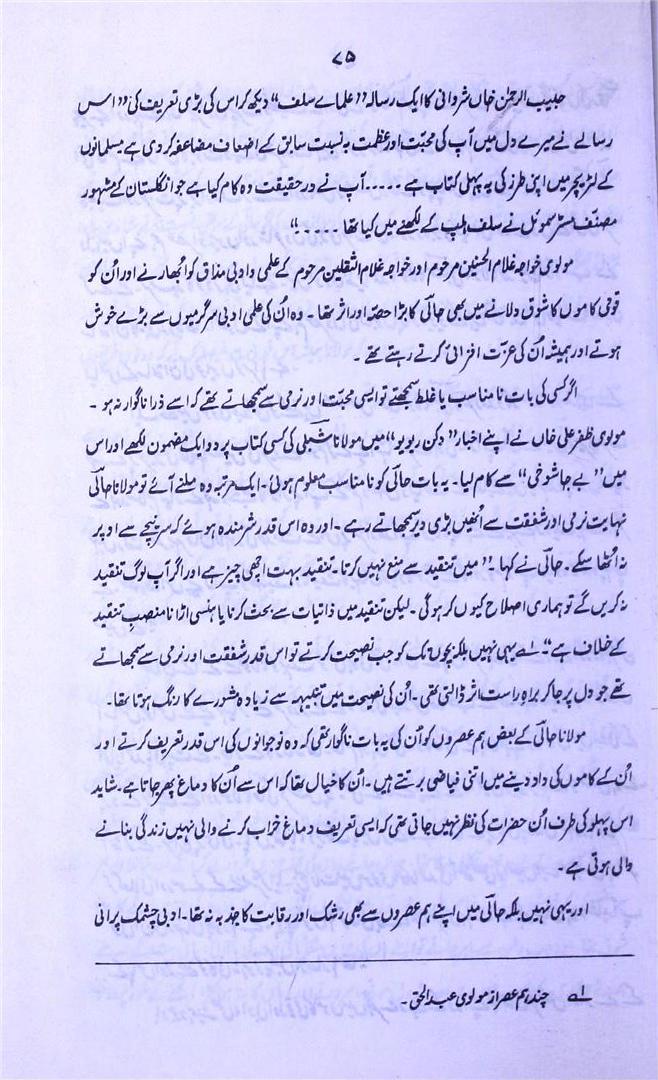 ۷۵
حبیب الرحمٰن خاں شروانی کا ایک رسالہ ”علمائے سلف“ دیکھ کر اس کی بڑی تعریف کی ”اس
رسالے نے میرے دل میں آپ کی محبّت اور عظمت بہ نسبت سابق کے اضعاف مضاعفہ کر دی ہے مسلمانوں
کے لٹریچر میں اپنی طرز کی یہ پہلی کتاب ہے ..... آپ نے در حقیقت وہ کام کیا ہے جو انگلستان کے مشہور
مصنّف مسٹر سموئل نے سلف ہلپ کے لکھنے میں کیا تھا .....“
مولوی خواجہ غلام الحسنین مرحوم اور خواجہ غلام الثقلین مرحوم کے علمی و ادبی مذاق کو اُبھارنے اور اُن کو
قومی کاموں کا شوق دلانے میں بھی حالی کا بڑا حصّہ اور اثر تھا ۔ وہ اُن کی علمی ادبی سرگرمیوں سے بڑے خوش
ہوتے اور ہمیشہ اُن کی عزّت افزائی کرتے رہتے تھے ۔
اگر کسی کی بات نا مناسب یا غلط سمجھتے تو ایسی محبّت اور نرمی سے سمجھاتے تھے کہ اسے ذرا ناگوار نہ ہو ۔
مولوی ظفر علی خاں نے اپنے اخبار ”دکن ریویو“ میں مولانا شبلی کی کسی کتاب پر دو ایک مضمون لکھے اور اس
میں ”بے جا شوخی“ سے کام لیا ۔ یہ بات حالی کو نا مناسب معلوم ہوئی ۔ ایک مرتبہ وہ ملنے آئے تو مولانا حالی
نہایت نرمی اور شفقت سے اُنھیں بڑی دیر سمجھاتے رہے ۔ اور وہ اس قدر شرمندہ ہوئے کہ سر نیچے سے اوپر
نہ اُٹھا سکے ۔ حالی نے کہا :” میں تنقید سے منع نہیں کرتا ۔ تنقید بہت اچھی چیز ہے اور اگر آپ لوگ تنقید
نہ کریں گے تو ہماری اصلاح کیوں کر ہوگی ۔ لیکن تنقید میں ذاتیات سے بحث کرنا یا ہنسی اڑانا منصبِ تنقید
کے خلاف ہے“ ۱ے یہی نہیں بلکہ بچّوں تک کو جب نصیحت کرتے تو اس قدر شفقت اور نرمی سے سمجھاتے
تھے جو دل پر جا کر براہِ راست اثر ڈالتی تھی ۔ اُن کی نصیحت میں تنبیہہ سے زیادہ مشورے کا رنگ ہوتا تھا ۔
مولانا حالی کے بعض ہم عصروں کو اُن کی یہ بات ناگوار تھی کہ وہ نوجوانوں کی اس قدر تعریف کرتے اور
اُن کے کاموں کی داد دینے میں اتنی فیاضی برتتے ہیں ۔ اُن کا خیال تھا کہ اس سے اُن کا دماغ پھر جاتا ہے ۔ شاید
اس پہلو کی طرف اُن حضرات کی نظر نہیں جاتی تھی کہ ایسی تعریف دماغ خراب کرنے والی نہیں زندگی بنانے
والی ہوتی ہے ۔
اور یہی نہیں بلکہ حالی میں اپنے ہم عصروں سے بھی رشک اور رقابت کا جذبہ نہ تھا ۔ ادبی چشمک پرانی
۱ے چند ہم عصر از مولوی عبدالحق ۔